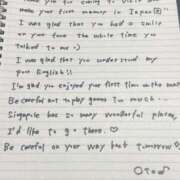 for coming to visit
first memory in Japan
I was glad that you had a smile
on your face the whole time you
talked to me :)
I was glad that you understand my
poor English!!
I'm glad you enjoyed your first time on the
Be careful not to play games too much...
Singapole has so many wonderful places,
I'd like to go there. ♡
Be careful on your way back tomorrow